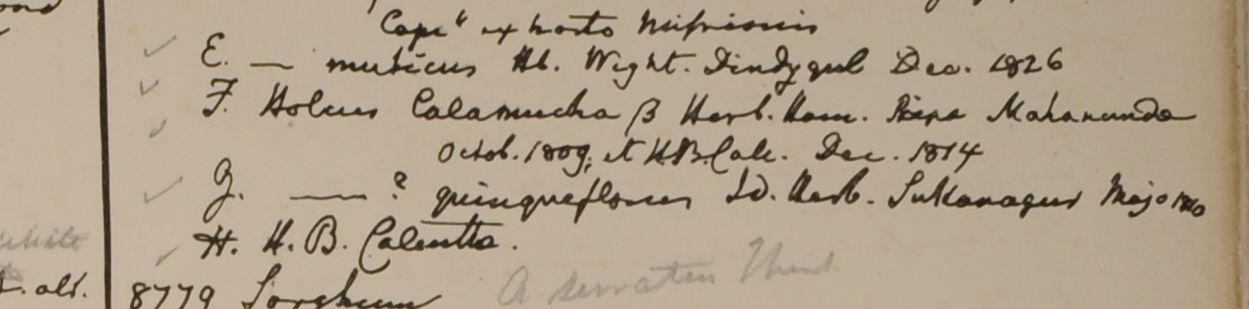 Cape" ex horto Missionis
E. — muticus Hb. Wight. Dindygul Dec. 1826
F. Holcus Calamucha β Herb. Ham. Ripa Mahanunda
Octob. 1809, et H.B. Calc. Dec. 1814
G. — ? quinqueflorus Id. Herb. Sukanagur Majo 1810
H. H. B. Calcutta.
8779 Sorghum A serratus Thunb
. alt.